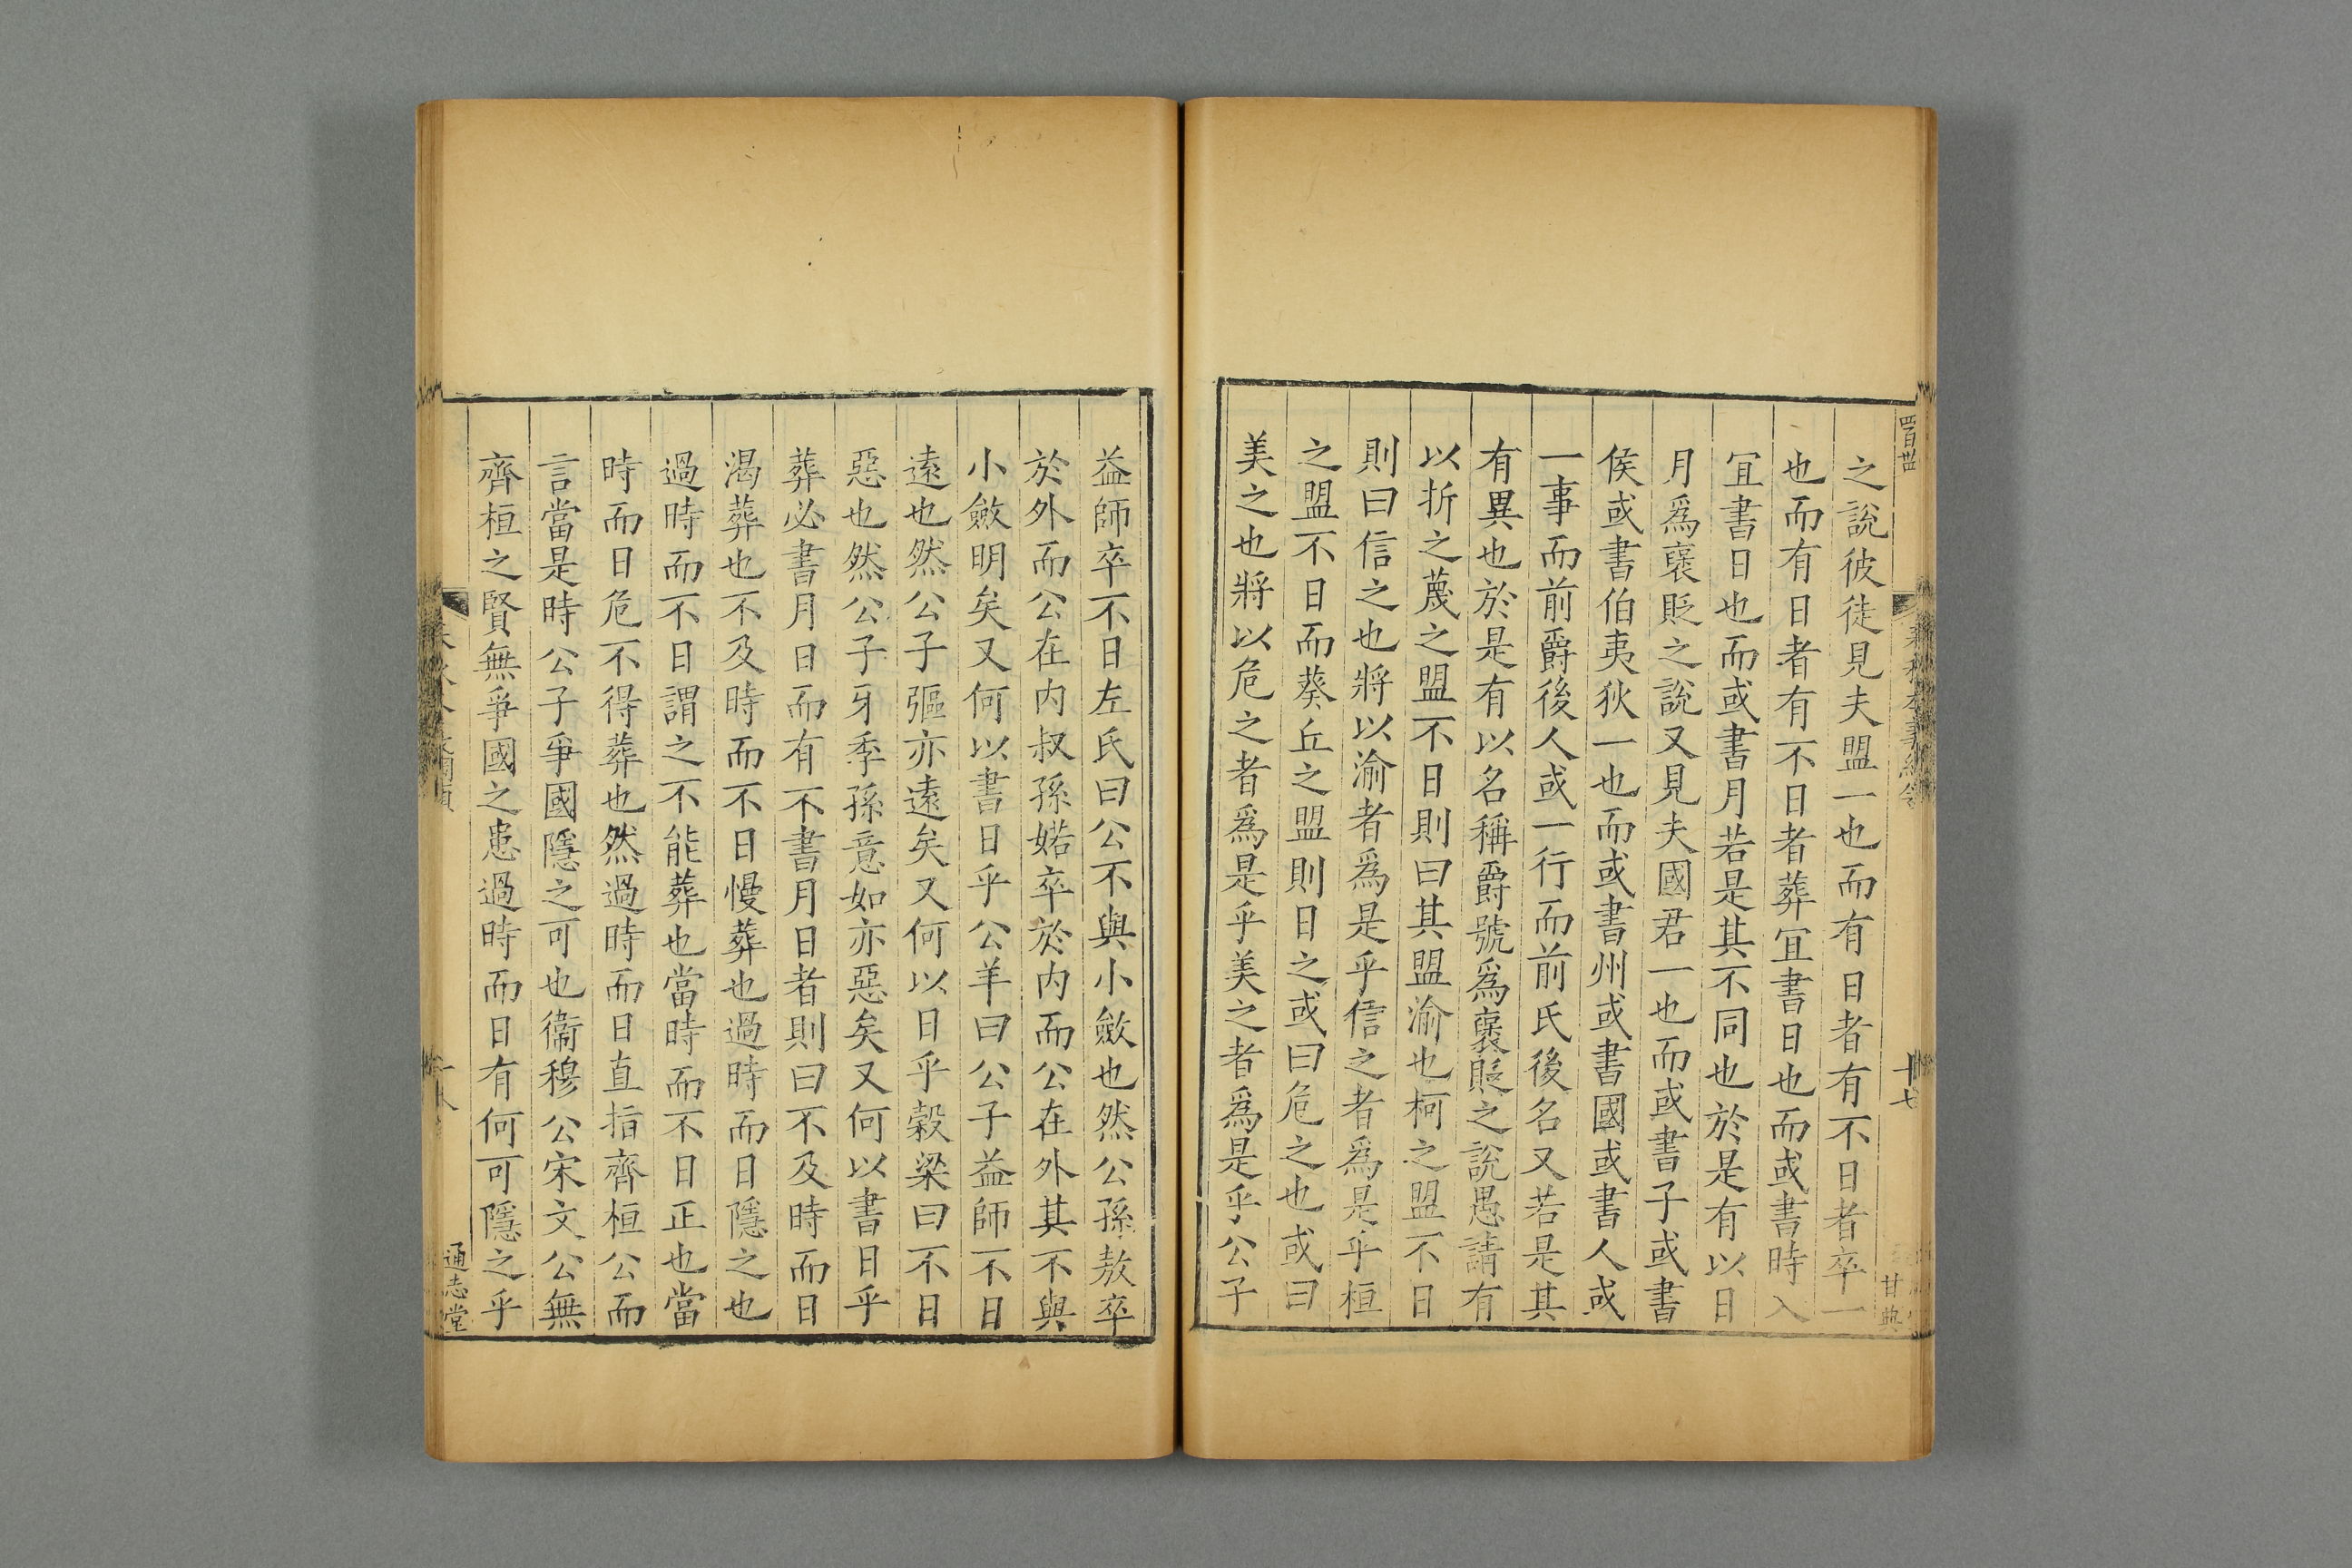 之說彼徒見夫盟一也而有日者有不日者卒一
也而有日者有不日者葬冝書日也而或書時入
冝書日也而或書月若是其不同也於是有以日
月爲襃貶之說又見夫國君一也而或書子或書
侯或書伯夷狄一也而或書州或書國或書人或
一事而前爵後人或一行而前氏後名又若是其
有異也於是有以名稱爵號爲襃貶之說愚請有
以折之蔑之盟不日則曰其盟渝也柯之盟不日
則曰信之也將以渝者爲是乎信之者爲是乎桓
之盟不日而葵丘之盟則日之或曰危之也或曰
美之也將以危之者爲是乎美之者爲是乎公子
益師卒不日左氏曰公不與小斂也然公孫敖卒
於外而公在内叔孫婼卒於内而公在外其不與
小斂明矣又何以書日乎公羊曰公子益師不日
遠也然公子彄亦遠矣又何以日乎穀梁曰不日
惡也然公子牙季孫意如亦惡矣又何以書日乎
葬必書月日而有不書月日者則曰不及時而日
渴葬也不及時而不日慢葬也過時而日隱之也
過時而不日謂之不能葬也當時而不日正也當
時而日危不得葬也然過時而日直指齊桓公而
言當是時公子爭國隱之可也衞穆公宋文公無
齊桓之賢無爭國之患過時而日有何可隱之乎
十七
甘典
通志堂